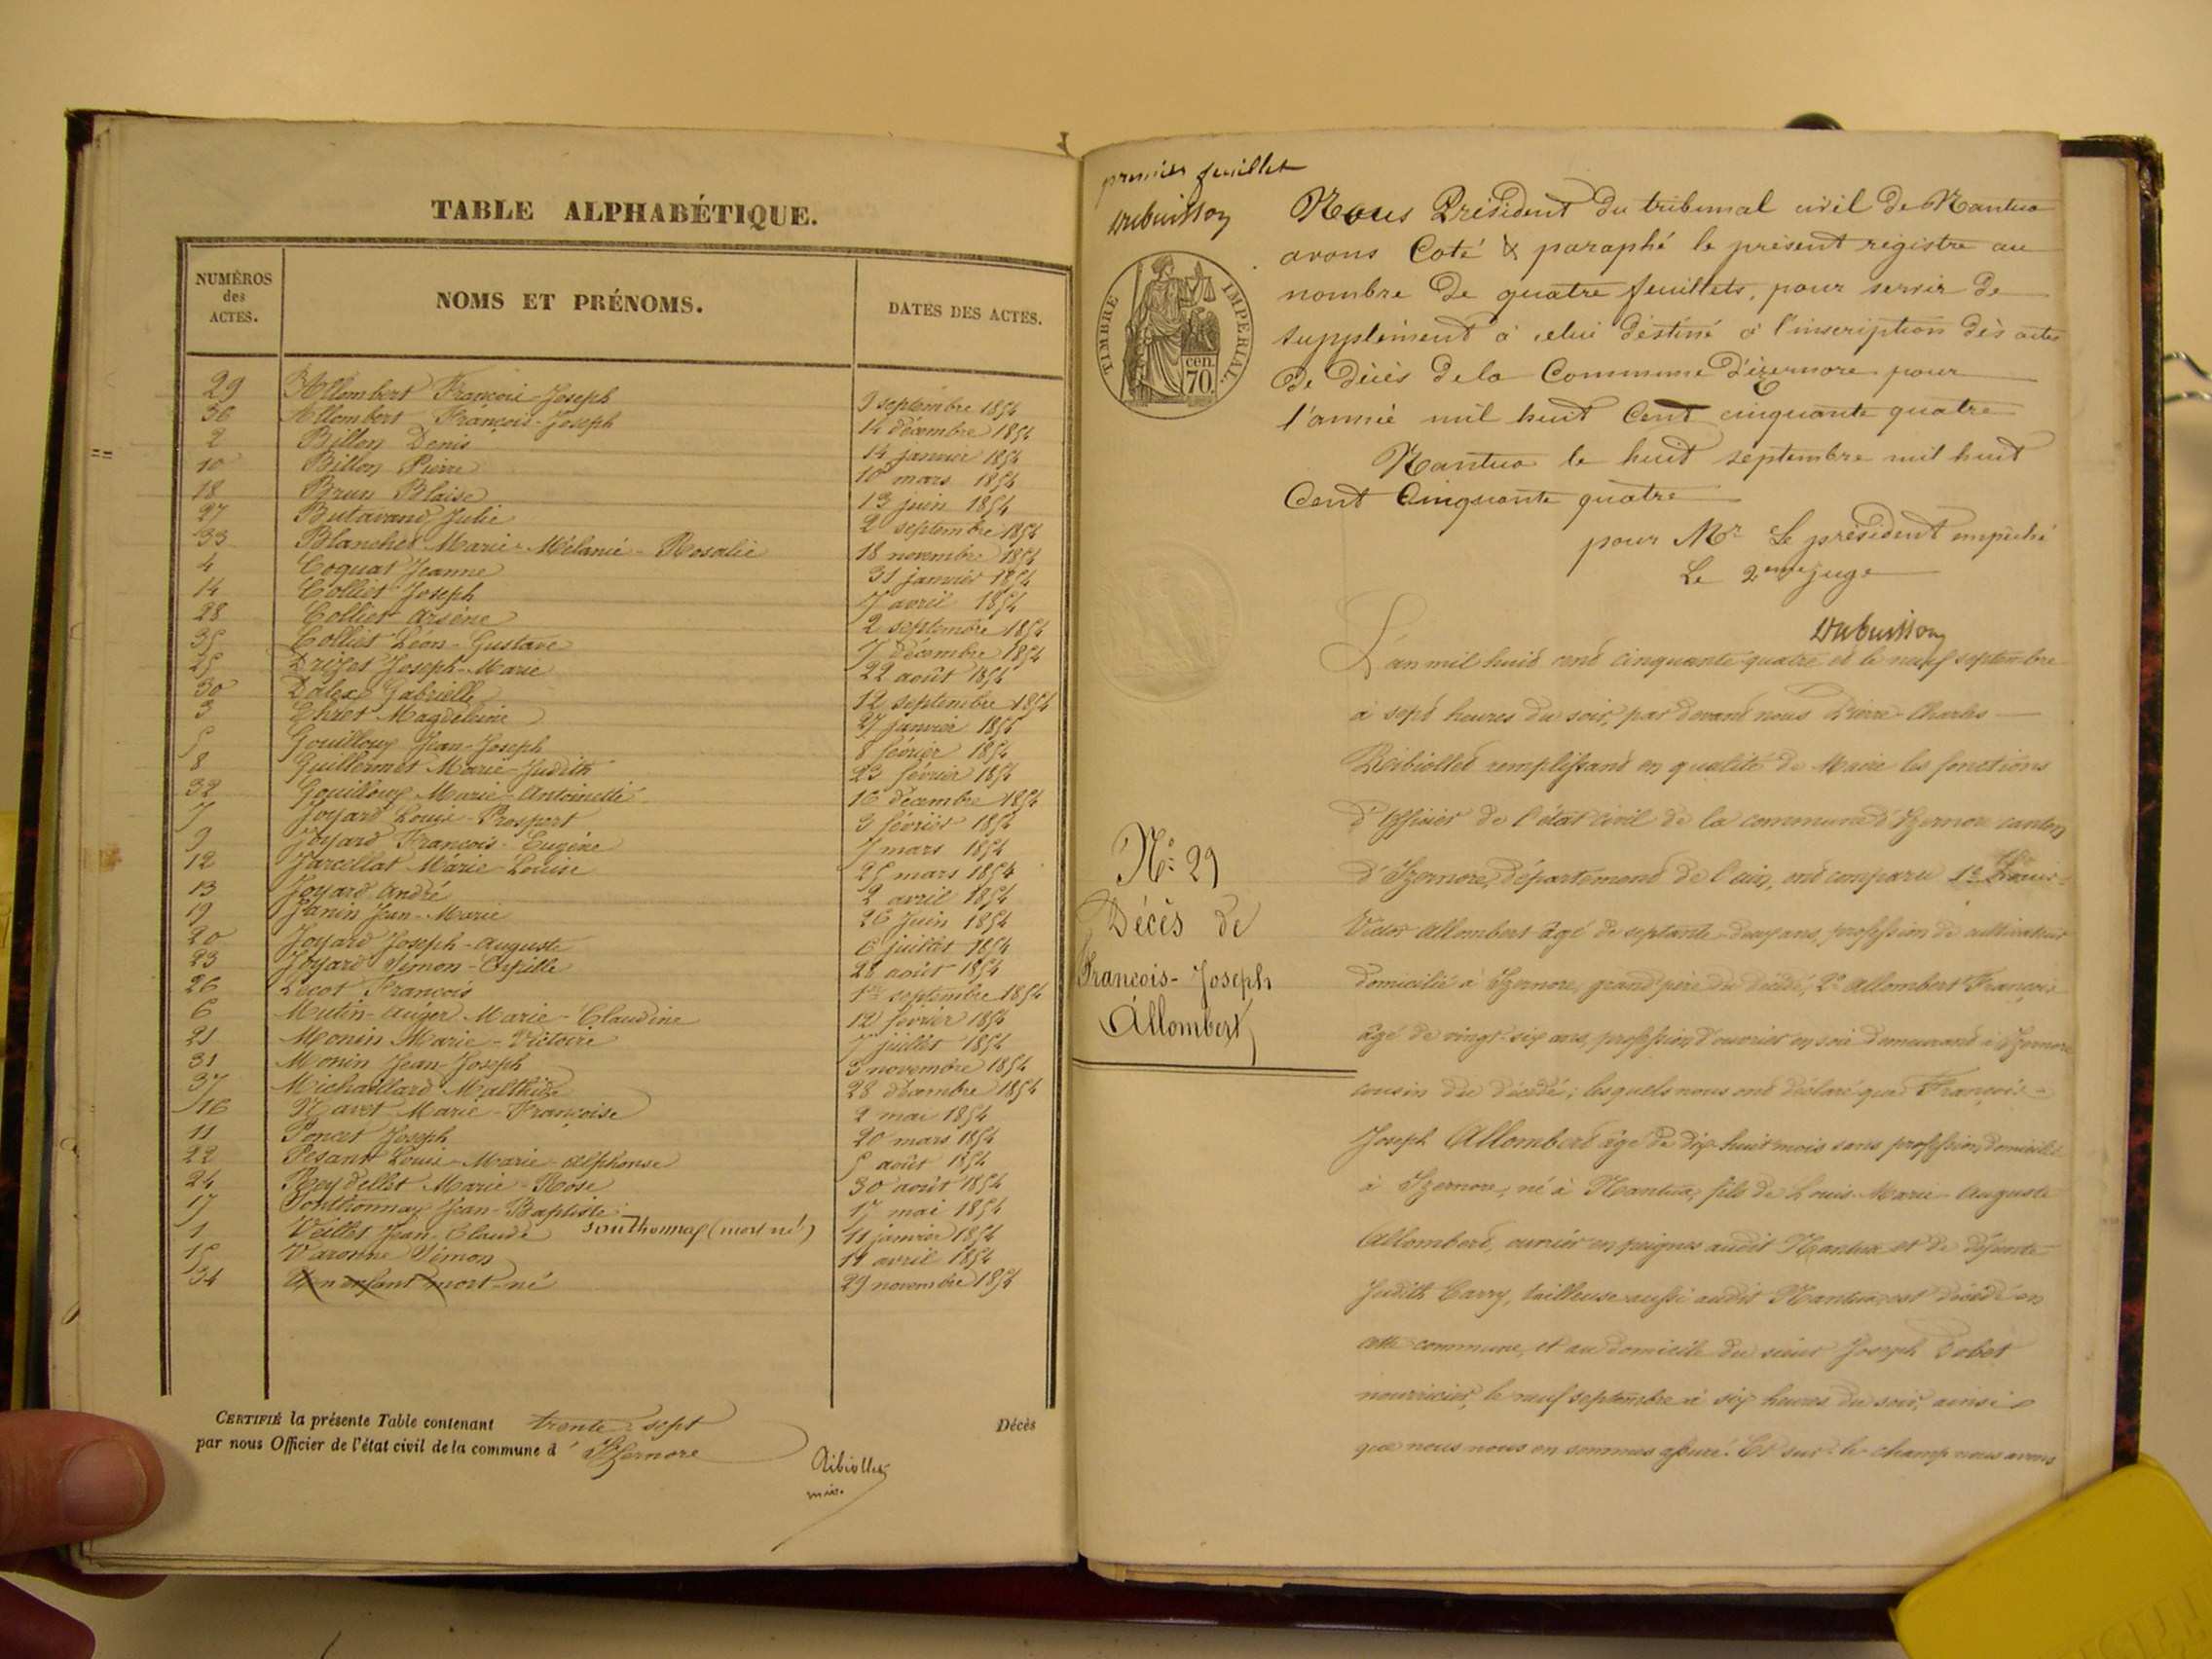 TABLE ALPHABÉTIQUE.
NUMÉROS
des
ACTES.
NOMS ET PRÉNOMS.
DATES DES ACTES.
29 Allombert François-Joseph 9 septembre 1854
36 Allombert François-Joseph 14 décembre 1854
2 Billon Denis 14 janvier 1854
10 Billon Pierre 10 mars 1854
18 Brun Blaise 13 juin 1854
27 Butavand Julie 2 septembre 1854
33 Blanchet Marie-Mélanie-Rosalie 18 novembre 1854
4 Coquat Jeanne 31 janvier 1854
14 Colliet Joseph 7 avril 1854
28 Colliet Arsène 2 septembre 1854
35 Colliet Léon-Gustave 7 décembre 1854
25 Drizet Joseph-Marie 22 août 1854
30 Dalex Gabrielle 12 septembre 1854
3 Ehret Magdeleine 27 janvier 1854
5 Gouilloux Jean-Joseph 8 février 1854
8 Guillermet Marie-Judith 23 février 1854
32 Gouilloux Marie-Antoinette 16 décembre 1854
7 Joyard Louis-Prospert 3 février 1854
9 Joyard François-Eugène 7 mars 1854
12 Jarcellat Marie-Louise 25 mars 1854
13 Joyard André 2 avril 1854
19 Janin Jean-Marie 26 Juin 1854
20 Joyard Joseph-Auguste 6 juillet 1854
23 Joyard Simon 28 août 1854
26 Lecot François 1er septembre 1854
6 Mutin-Auger Marie-Claudine 12 février 1854
21 Monin Marie-Victoire 7 juillet 1854
31 Monin Jean-Joseph 3 novembre 1854
37 Michaillard Malthide 28 décembre 1854
16 Navet Marie-Françoise 2 mai 1854
11 Poncet Joseph 20 mars 1854
22 Pesant Louis-Marie-Alphonse 5 août 1854
24 Reydellet Marie-Rose 30 août 1854
17 Sonthonnax Jean-Baptiste 17 mai 1854
1 Veillet Jean-Claude 11 janvier 1854
Sonthonnax (mort né)
15 Varonne Simon 14 avril 1854
34 Un enfant mort-né 29 novembre 1854
CERTIFIÉ la présente Table contenant trente-sept Décès
par nous Officier de l'état civil de la commune d'Izernore
Reibiollet
maire
premier feuillet
Dubuisson
TIMBRE IMPERIAL.
cen.
70
Nous Président du tribunal civil de Nantua
avons Coté & paraphé le présent registre au
nombre de quatre feuillets, pour servir de
supplément à celui destiné à l'inscription des actes
de Décès de la Commune d'izernore pour
l'année mil huit Cent cinquante quatre
Nantua le huit septembre mil huit
Cent Cinquante quatre
pour Mr Le président empêché
Le 2eme juge
Dubuisson
N° 29
Décès de
François-Joseph
Allombert
L'an mil huit cent cinquante quatre et le neuf septembre
à sept heures du soir, par devant nous Pierre-Charles
Reibiollet remplissant en qualité de Maire les fonctions
d'Officier de l'état civil de la commune d'Izernore canton
d'Izernore, département de l'ain, ont comparu 1° Louis-
Victor Allombert âgé de septante-deux ans, profession de cultivateur
domicilié à Izernore, grand père du décédé, 2° Allombert François
âgé de vingt-six ans, profession d'ouvrier en soie demeurant à Izernore
cousin du décédé; lesquels nous ont déclaré que François-
Joseph Allombert âgé de dix-huit mois sans profession, domicilié
à Izernore, né à Nantua, fils de Louis-Marie-Auguste
Allombert, ouvrier en peignes audit Nantua et de défunte
Judith Carry, tailleuse aussi audit Nantua est décédé en
cette commune, et au domicile du sieur Joseph Gobet
nourricier, le neuf septembre à six heures du soir, ainsi
que nous nous en sommes assuré. Et sur-le-champ nous avons